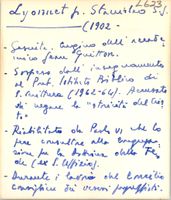 L623
Lyonnet p. Stanislao S.J.
(1902 -
- Gesuita. Cugino dell'accade-
mico Jean Guitton.
- Sospeso dall'insegnamento
al Pont. Istituto Biblico di
(1962-64). Accusato
di negare la storicità del
- Riabilitato da Paolo VI che lo
fece consultore alla Congrega-
zione per la dottrina della Fe-
de (ex S. Uffizio).
- Durante i lavori del Concilio
consigliere di vescovi